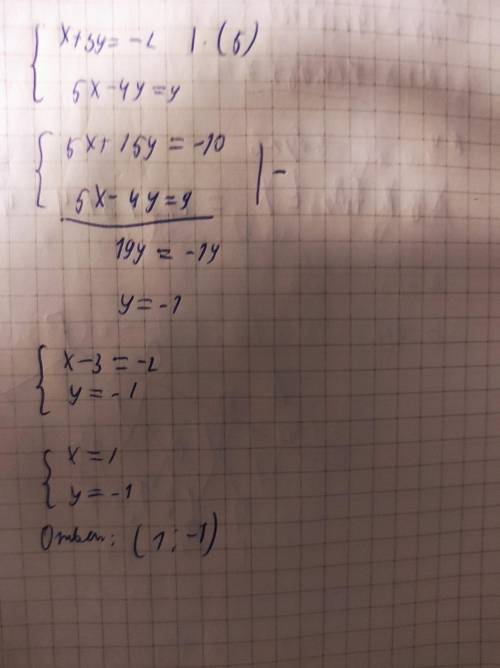 x+3y=-2 | · (5)
5x-4y=9
5x+15y=-10
5x-4y=9 | -
19y=-19
y=-1
x-3=-2
y=-1
x=1
y=-1
Ответ: (1; -1)